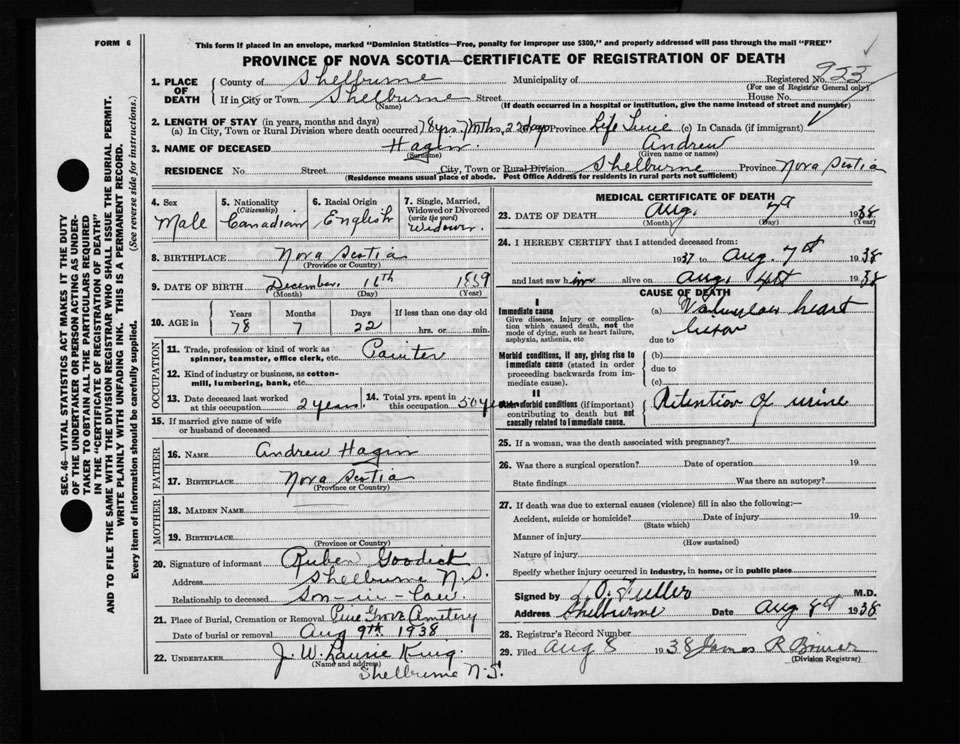 FORM 6
This form if placed in an envelope, marked "Dominion Statistics—Free, penalty for improper use $300," and properly addressed will pass through the mail "FREE"
PROVINCE OF NOVA SCOTIA—CERTIFICATE OF REGISTRATION OF DEATH
SEC. 46—VITAL STATISTICS ACT MAKES IT THE DUTY
OF THE UNDERTAKER OR PERSON ACTING AS UNDER-
TAKER TO OBTAIN ALL THE PARTICULARS REQUIRED
IN THE "CERTIFICATE OF REGISTRATION OF DEATH"
AND TO FILE THE SAME WITH THE DIVISION REGISTRAR WHO SHALL ISSUE THE BURIAL PERMIT.
WRITE PLAINLY WITH UNFADING INK. THIS IS A PERMANENT RECORD.
Every item of information should be carefully supplied. (See reverse side for instructions.)
1. PLACE OF DEATH
County of Shelburne Municipality of Registered No. 922
(For use of Registrar General only)
If in City or Town Shelburne Street House No.
(Name) (If death occurred in a hospital or institution, give the name instead of street and number)
2. LENGTH OF STAY (in years, months and days)
(a) In City, Town or Rural Division where death occurred 78 yrs. 7 Mths, 22 days Province Life Time (c) In Canada (if immigrant)
3. NAME OF DECEASED Hagin. Andrew
(Surname) (Given name or names)
RESIDENCE No. Street City, Town or Rural Division Shelburne Province Nova Scotia
(Residence means usual place of abode. Post Office Address for residents in rural parts not sufficient)
4. Sex
Male
5. Nationality
(Citizenship)
Canadian
6. Racial Origin
English
7. Single, Married,
Widowed or Divorced
(write the word)
Widower.
8. BIRTHPLACE Nova Scotia
(Province or Country)
9. DATE OF BIRTH December. 16th 1859
(Month) (Day) (Year)
10. AGE in Years Months Days If less than one day old
78 7 22 hrs. or min.
OCCUPATION
11. Trade, profession or kind of work as
spinner, teamster, office clerk, etc. Painter
12. Kind of industry or business, as cotton-
mill, lumbering, bank, etc.
13. Date deceased last worked
at this occupation 2 years.
14. Total yrs. spent in
this occupation 50 years
15. If married give name of wife
or husband of deceased
FATHER
16. NAME Andrew Hagin
17. BIRTHPLACE Nova Scotia
(Province or Country)
MOTHER
18. MAIDEN NAME
19. BIRTHPLACE
(Province or Country)
20. Signature of informant Ruben Goodick
Address Shelburne N.S.
Relationship to deceased Son-in-law.
21. Place of Burial, Cremation or Removal Pine Grove Cemetery
Date of burial or removal Aug 9th. 1938
22. UNDERTAKER J. W. Laurie King.
(Name and address)
Shelburne N.S.
MEDICAL CERTIFICATE OF DEATH
23. DATE OF DEATH Aug. 7th 1938
(Month) (Day) (Year)
24. I HEREBY CERTIFY that I attended deceased from:
1937 to Aug. 7th 1938
and last saw him alive on Aug, 1938
CAUSE OF DEATH
I
Immediate cause
Give disease, injury or complica-
tion which caused death, not the
mode of dying, such as heart failure,
asphyxia, asthenia, etc
(a) Valvular heart
lesion
due to
Morbid conditions, if any, giving rise to
immediate cause (stated in order
proceeding backwards from im-
mediate cause).
(b)
due to
(c)
II
Other morbid conditions (if important)
contributing to death but not
causally related to immediate cause.
Retention of urine
25. If a woman, was the death associated with pregnancy?
26. Was there a surgical operation? Date of operation 19
State findings Was there an autopsy?
27. If death was due to external causes (violence) fill in also the following:—
Accident, suicide or homicide? Date of injury 19
(State which)
Manner of injury
(How sustained)
Nature of injury
Specify whether injury occurred in industry, in home, or in public place
Signed by Fuller M.D.
Address Shelburne Date Aug 8th 1938
28. Registrar's Record Number
29. Filed Aug 8 1938 James R
(Division Registrar)